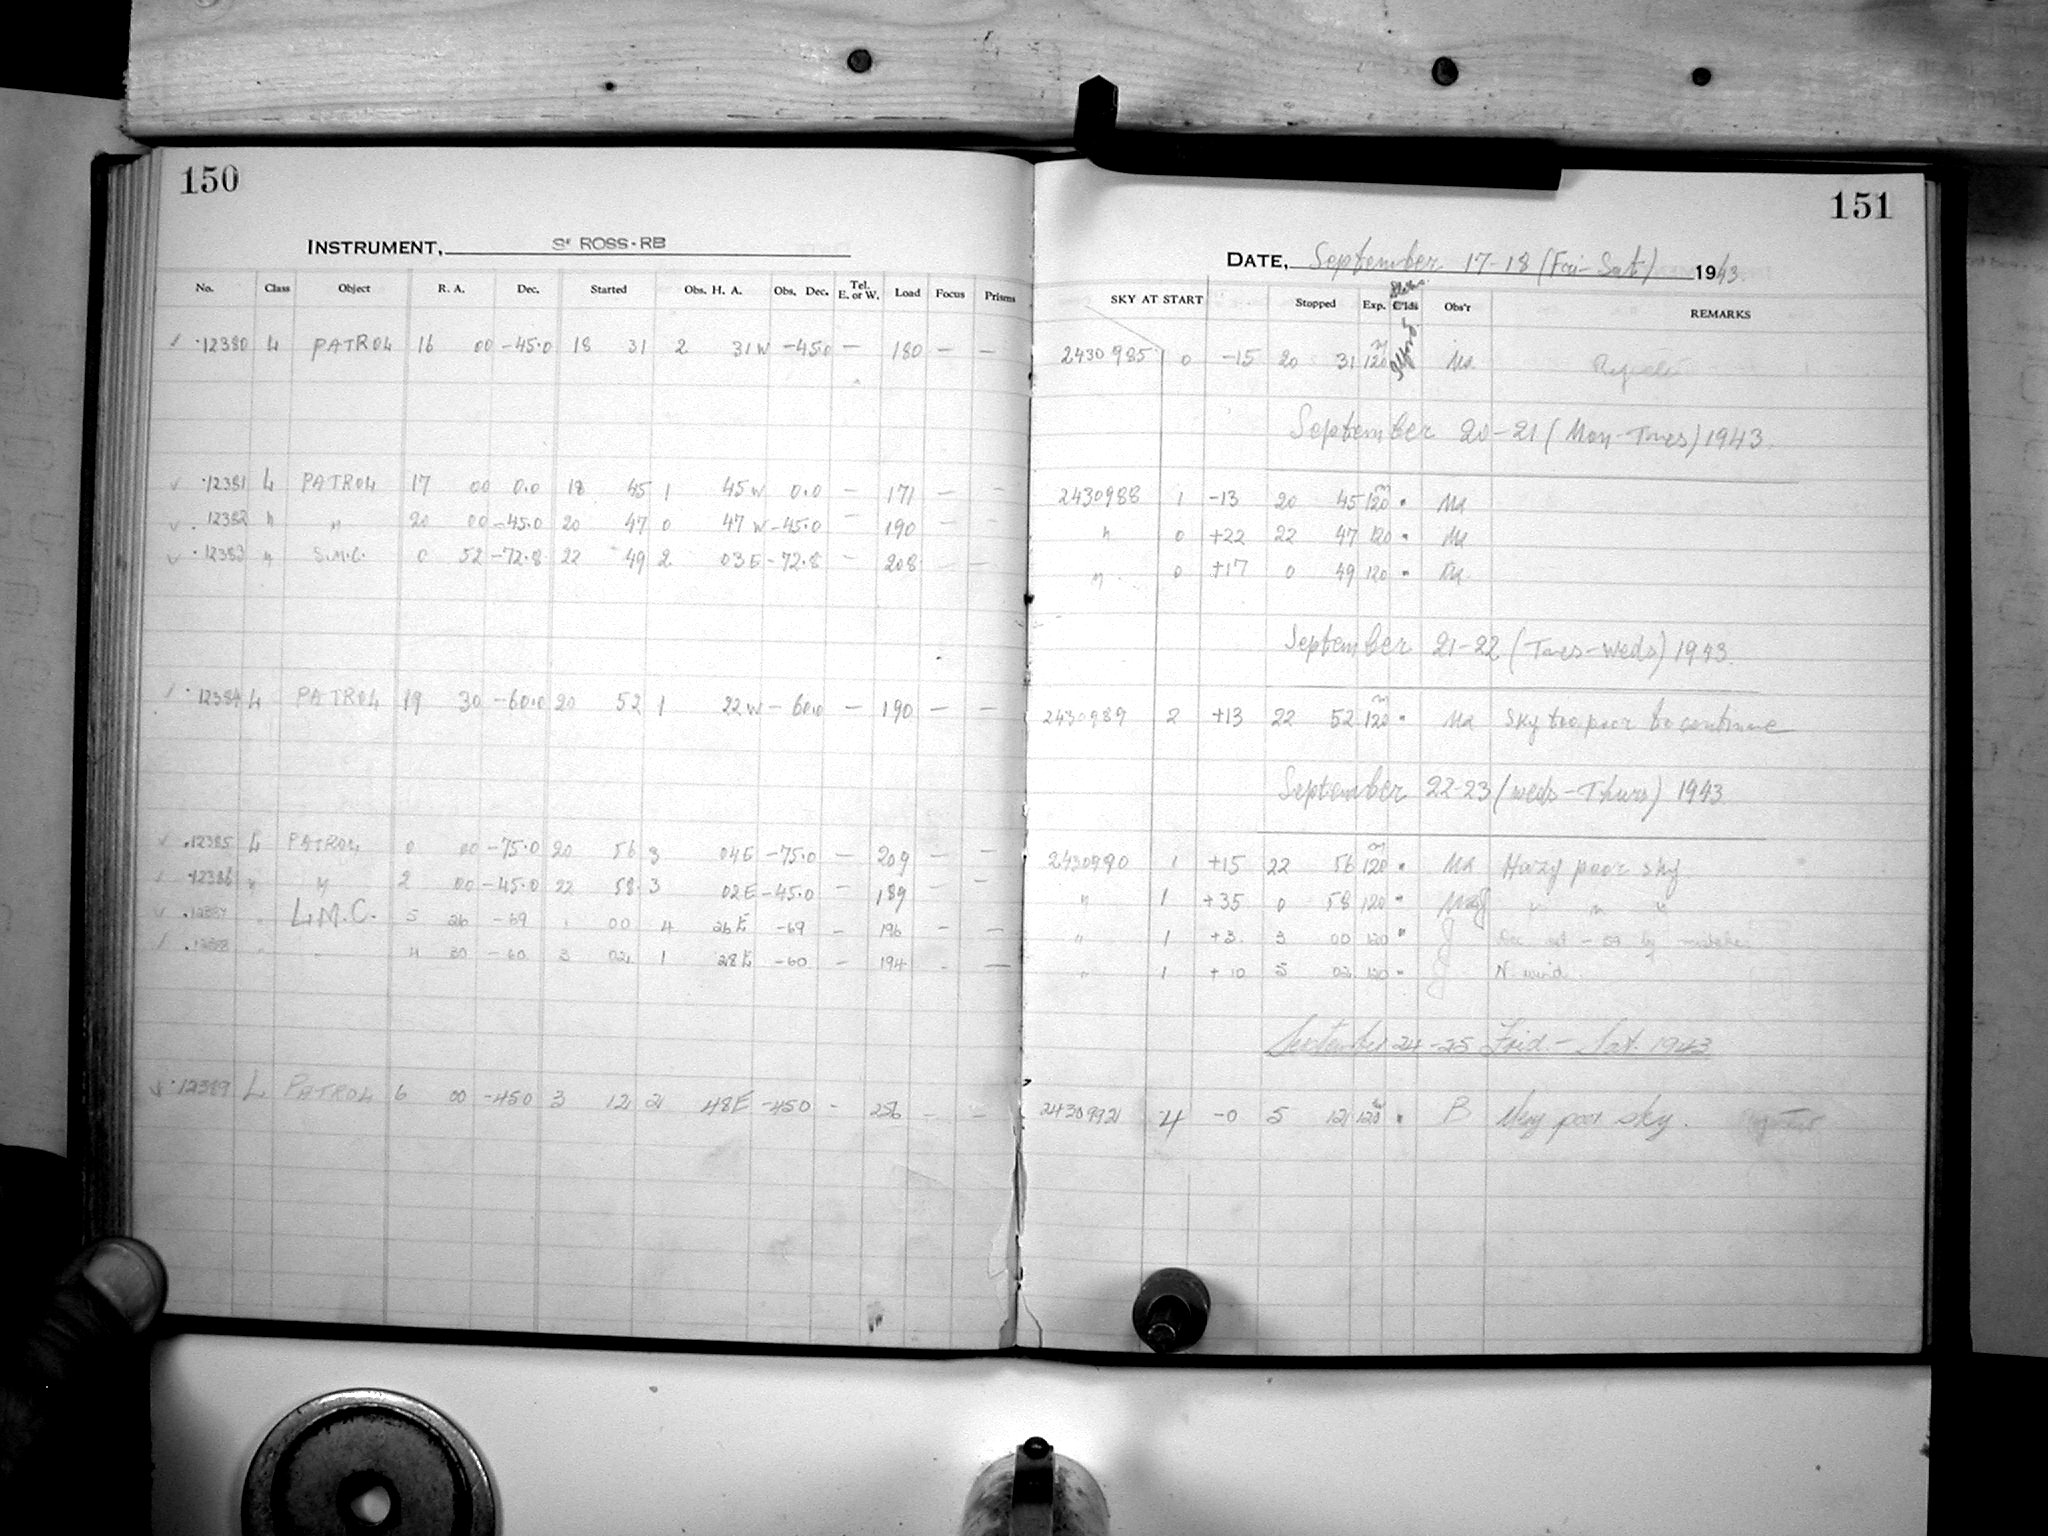 150
INSTRUMENT, 3" ROSS-RB
No. Class Object R. A. Dec. Started Obs. H. A. Obs. Dec. Tel. E. or W. Load Focus Prisms
12380 L PATROL 16 00 -45.0 18 31 2 31 W -45.0 — 180 — —
12381 L PATROL 17 00 0.0 18 45 1 45 W 0.0 — 171 — —
12382 " " 20 00 -45.0 20 47 0 47 W -45.0 — 190 — —
12383 " S.M.C. 0 52 -72.8 22 49 2 03 E -72.8 — 208 — —
12384 L PATROL 19 30 -60.0 20 52 1 22 W -60.0 — 190 — —
12385 L PATROL 0 00 -75.0 20 56 3 04 E -75.0 — 209 — —
12386 " " 2 00 -45.0 22 58 3 02 E -45.0 — 189 — —
12387 " L.M.C. 5 26 -69 1 00 4 26 E -69 — 196 — —
12388 " " 4 30 -60 3 02 1 28 E -60 — 194 — —
12389 L PATROL 6 00 -450 3 12 2 48 E -450 - 256 — —
151
DATE, September 17-18 (Fri-Sat) 1943.
SKY AT START Stopped Exp. C'lds Obs'r REMARKS
2430985 0 -15 20 31 120 Ma.
September 20-21 (Mon-Tues) 1943.
2430988 1 -13 20 45 120m " Ma
" 0 +22 22 47 120 " Ma
" 0 +17 0 49 120 " Ma
September 21-22 (Tues-Weds) 1943.
2430989 2 +13 22 52 120m " Ma Sky too poor to continue
September 22-23 (Weds-Thurs) 1943
2430990 1 +15 22 56 120m " Ma Hazy poor sky
" 1 +35 0 58 120 " " " "
" 1 +3 3 00 120 " J Dec set -59 by mistake
" 1 +10 5 02 120 " J N wind.
September 24-25 Frid.- Sat. 1943
2430992 4 -0 5 12 120m " B Very poor sky.